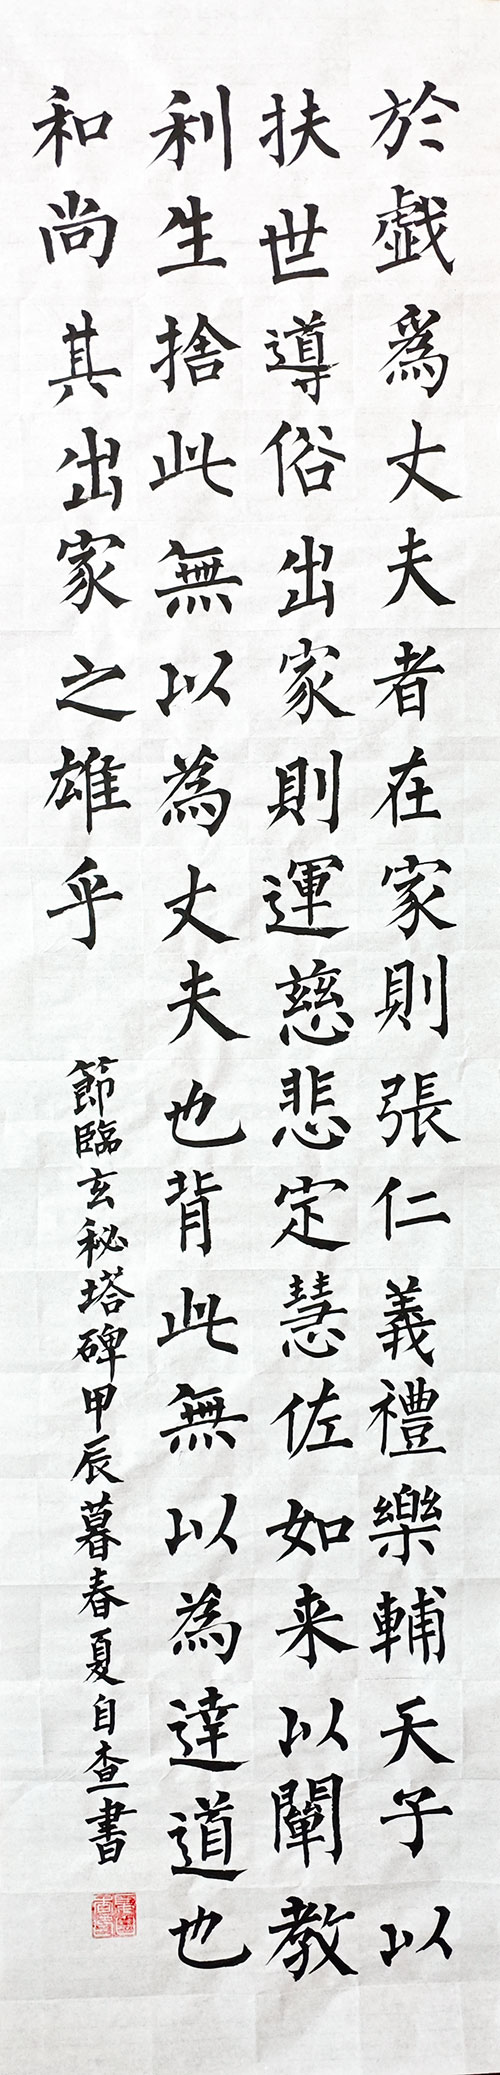 於戲爲丈夫者在家則張仁義禮樂輔天子以
扶世導俗出家則運慈悲定慧佐如来以闡教
利生捨此無以為丈夫也背此無以為達道也
和尚其出家之雄乎
節臨玄秘塔碑甲辰暮春夏自查書